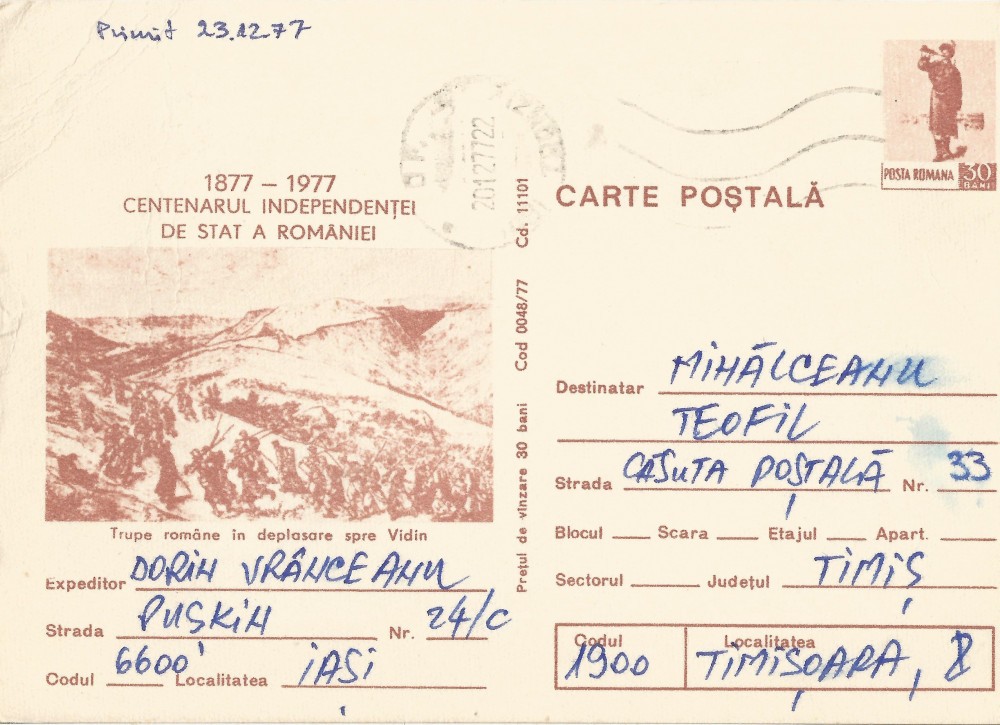 Primit 23.12.77
POSTA ROMANA 30 BANI
1877 – 1977
CENTENARUL INDEPENDENȚEI
DE STAT A ROMÂNIEI
Trupe române în deplasare spre Vidin
Expeditor DORIN VRÂNCEANU
Strada PUȘKIN Nr. 24/C
Codul 6600 Localitatea IAȘI
Prețul de vînzare 30 bani Cod 0048/77 Cd. 11101
2012 77 22
CARTE POȘTALĂ
Destinatar MIHĂLCEANU
TEOFIL
Strada CĂSUȚA POȘTALĂ Nr. 33
Blocul Scara Etajul Apart.
Sectorul Județul TIMIȘ
Codul Localitatea
1900 TIMIȘOARA,